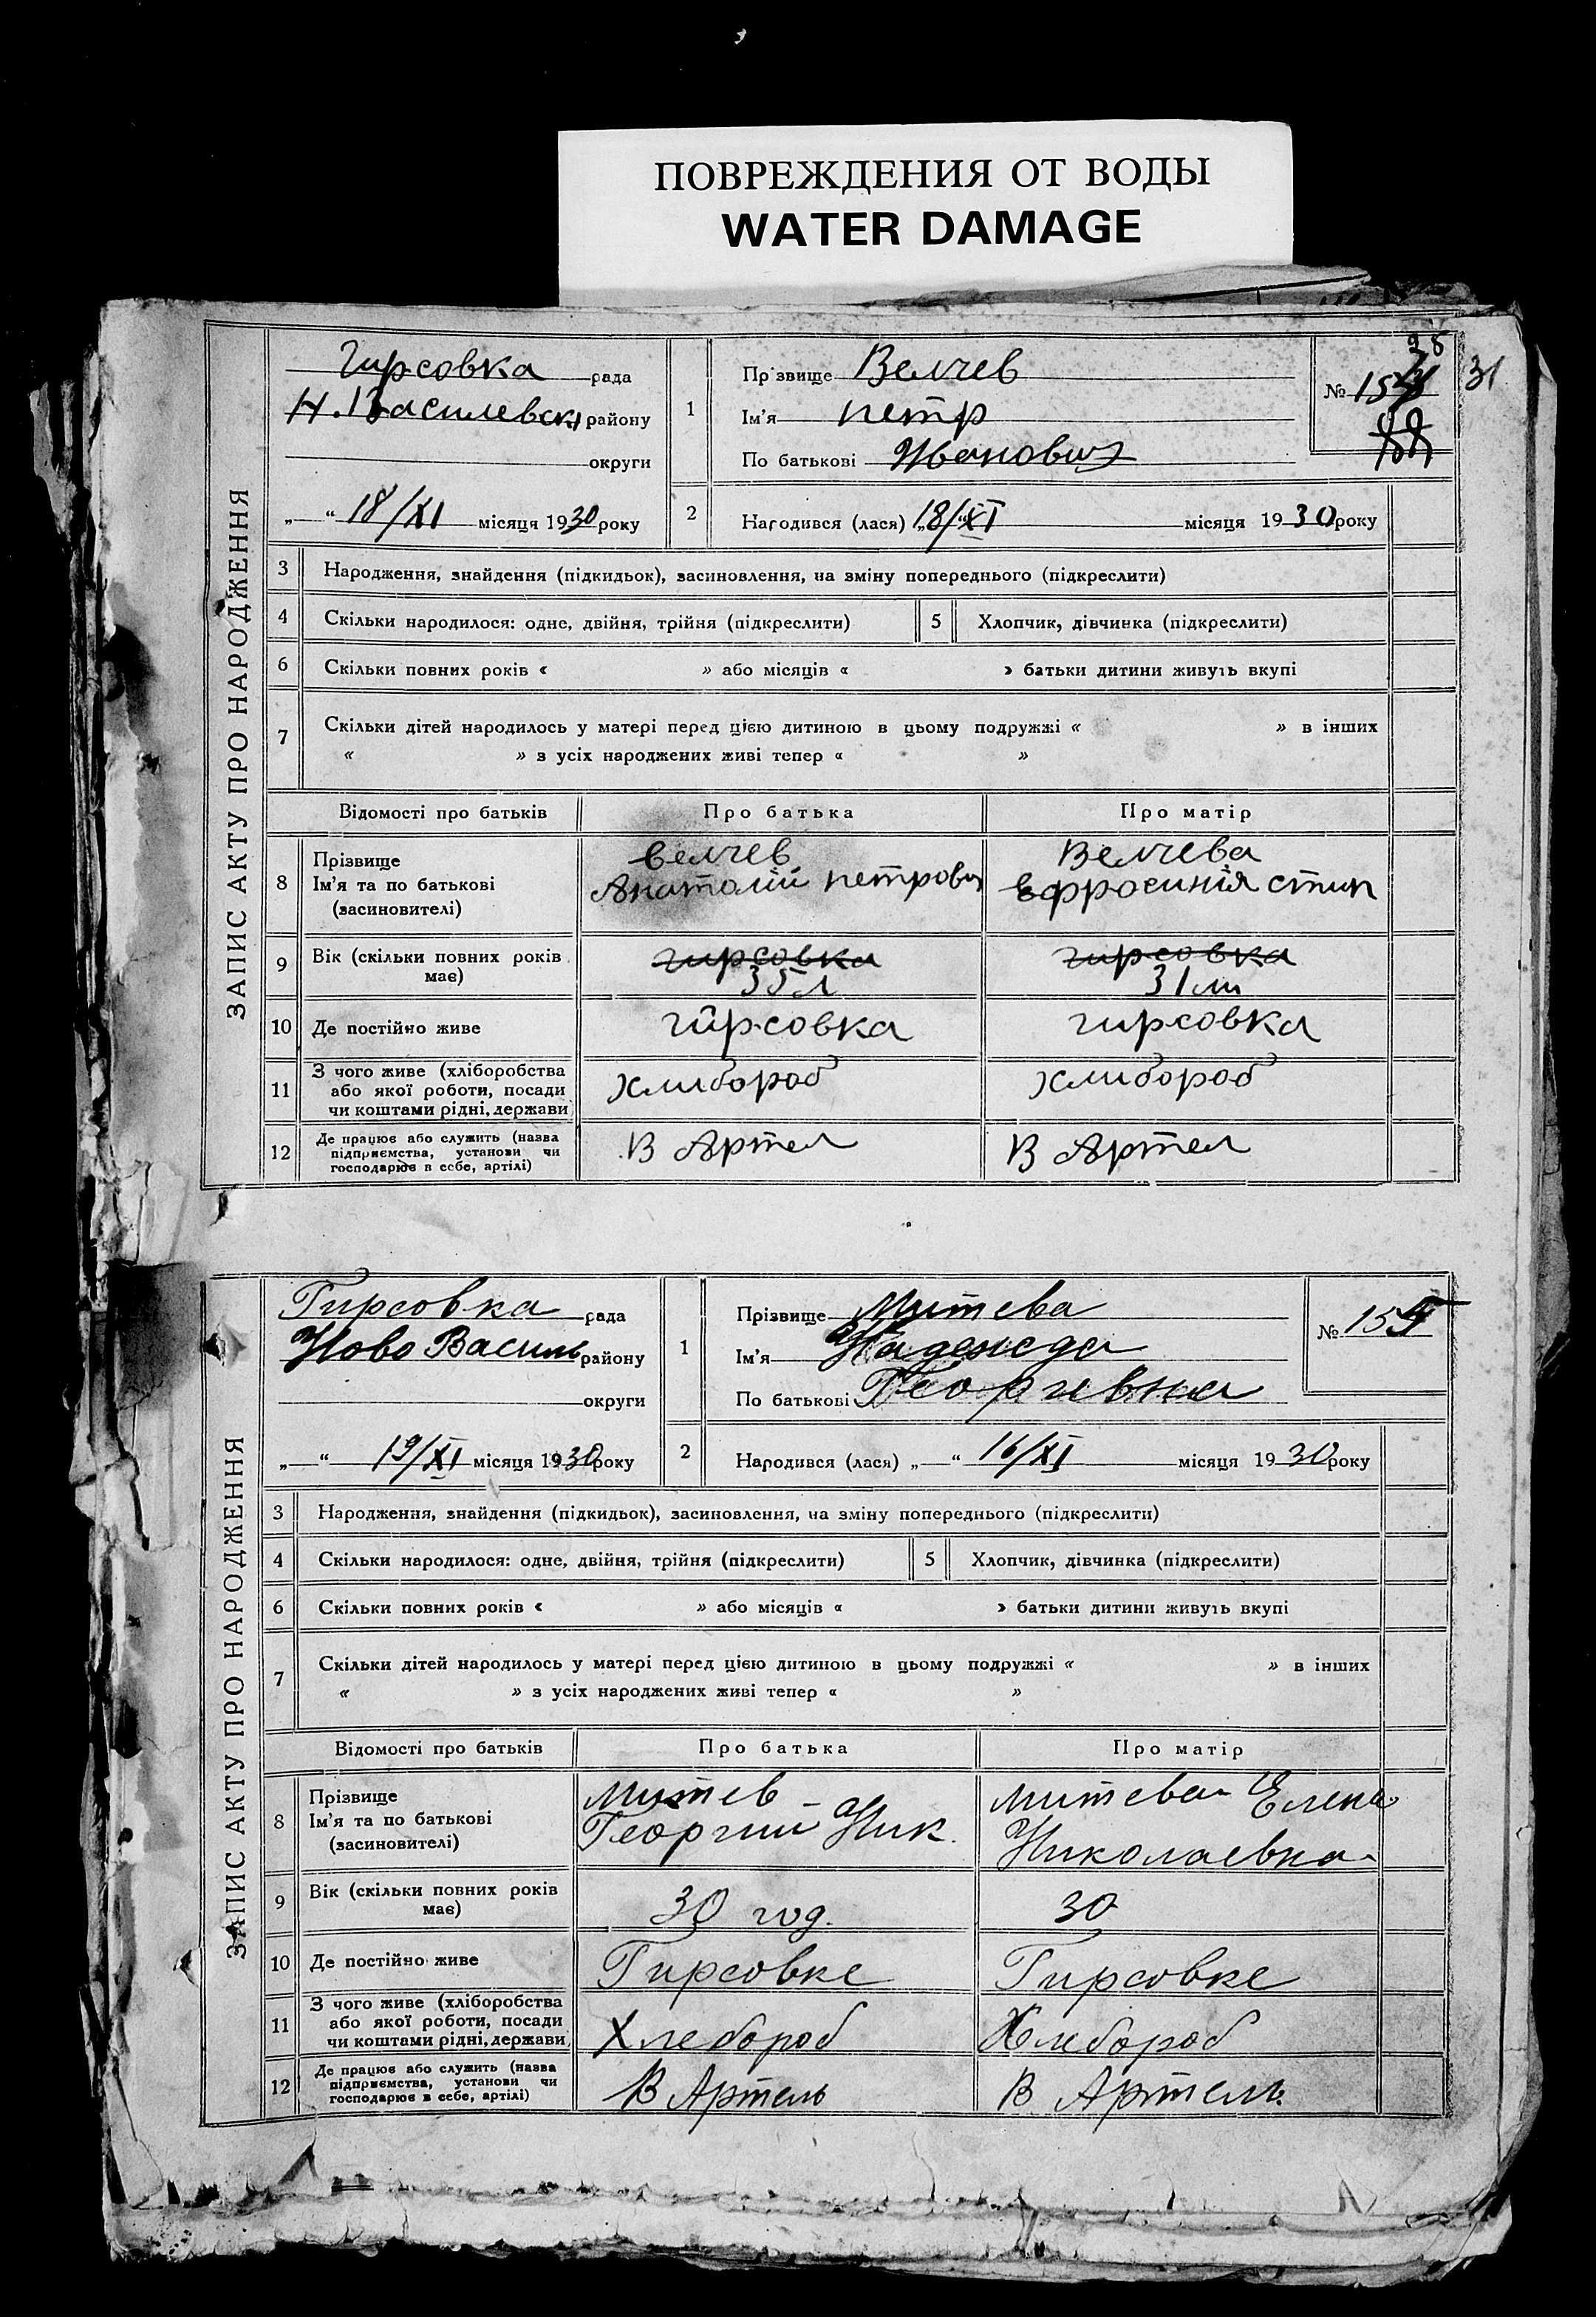 ПОВРЕЖДЕНИЯ ОТ ВОДЫ
WATER DAMAGE
31
ЗАПИС АКТУ ПРО НАРОДЖЕННЯ
Гирсовка рада
Н. Василевски району
округи
„ “ 18/XI місяця 1930 року
1 Прізвище Велчев
Ім'я петр
По батькові Иванович
№
2 Народився (лася) „18/XI місяця 1930 року
3 Народження, знайдення (підкидьок), засиновлення, на зміну попереднього (підкреслити)
4 Скільки народилося: одне, двійня, трійня (підкреслити) 5 Хлопчик, дівчинка (підкреслити)
6 Скільки повних років « » або місяців « » батьки дитини живуть вкупі
7 Скільки дітей народилось у матері перед цією дитиною в цьому подружжі « » в інших
« » з усіх народжених живі тепер « »
Відомості про батьків Про батька Про матір
8 Прізвище Ім'я та по батькові (засиновителі) велчев Анатолій петрович Велчева Ефросинія стип
9 Вік (скільки повних років має) гирсовка 35 л гирсовка 31 ли
10 Де постійно живе гирсовка гирсовка
11 З чого живе (хліборобства або якої роботи, посади чи коштами рідні, держави Хлибороб Хлибороб
12 Де працює або служить (назва підприємства, установи чи господарює в себе, артілі) В Артел В Артел
ЗАПИС АКТУ ПРО НАРОДЖЕННЯ
Гирсовка рада
Ново Василь району
округи
„ “ 19/XI місяця 1930 року
1 Прізвище Митева
Ім'я Надежда
По батькові Георгивна
№
2 Народився (лася) „ “ 16/XI місяця 1930 року
3 Народження, знайдення (підкидьок), засиновлення, на зміну попереднього (підкреслити)
4 Скільки народилося: одне, двійня, трійня (підкреслити) 5 Хлопчик, дівчинка (підкреслити)
6 Скільки повних років « » або місяців « » батьки дитини живуть вкупі
7 Скільки дітей народилось у матері перед цією дитиною в цьому подружжі « » в інших
« » з усіх народжених живі тепер « »
Відомості про батьків Про батька Про матір
8 Прізвище Ім'я та по батькові (засиновителі) митев - Георгии Ник. митева Елена Николаевна
9 Вік (скільки повних років має) 30 год. 30
10 Де постійно живе Гирсовке Гирсовке
11 З чого живе (хліборобства або якої роботи, посади чи коштами рідні, держави Хлебороб Хлебороб
12 Де працює або служить (назва підприємства, установи чи господарює в себе, артілі) В Артель В Артель